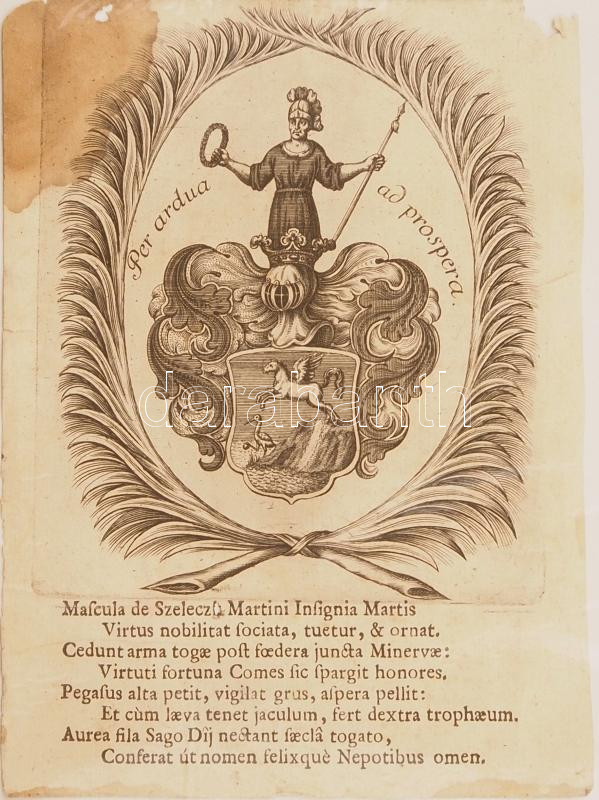 Per ardua ad prospera.
darabanth
Maſcula de Szeleczki Martini Inſignia Martis
Virtus nobilitat ſociata, tuetur, & ornat.
Cedunt arma togæ poſt fœdera juncta Minervæ:
Virtuti fortuna Comes ſic ſpargit honores.
Pegaſus alta petit, vigilat grus, aſpera pellit:
Et cùm læva tenet jaculum, fert dextra trophæum.
Aurea fila Sago Dĳ nectant ſæclâ togato,
Conferat út nomen felixquè Nepotibus omen.